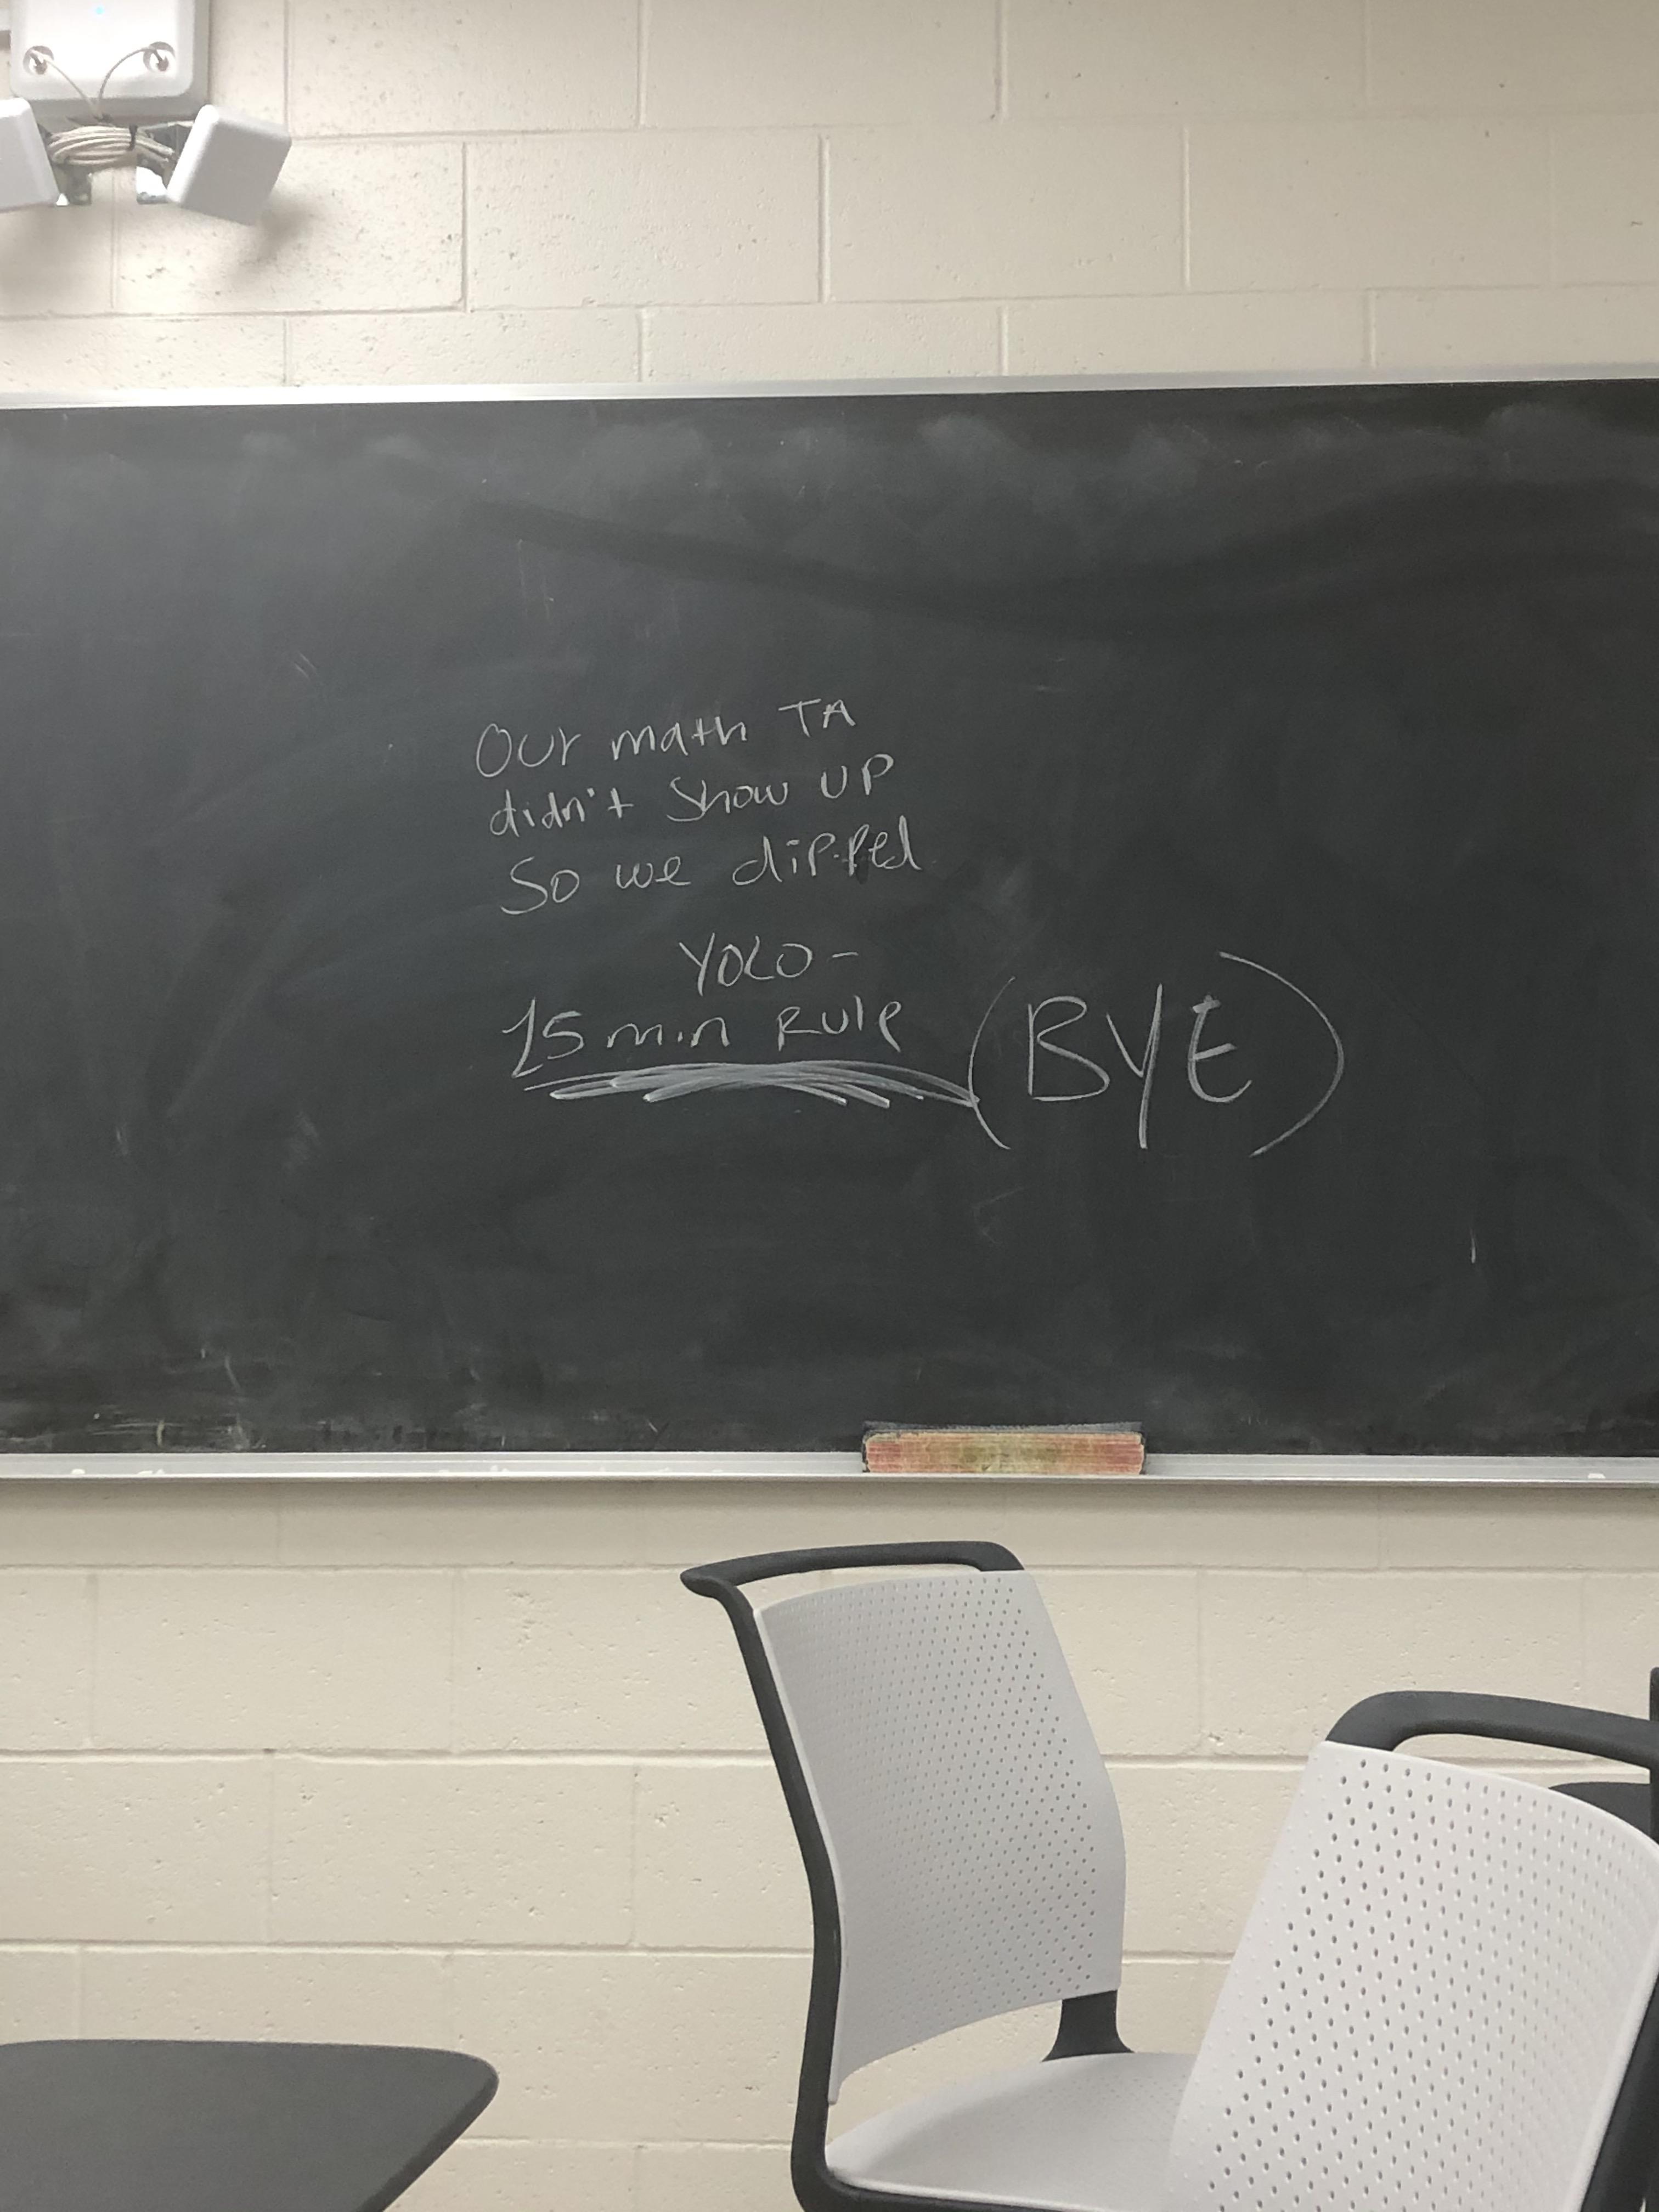 Our math TA
didn't show up
So we dipped
YOLO -
15 min Rule
(BYE)